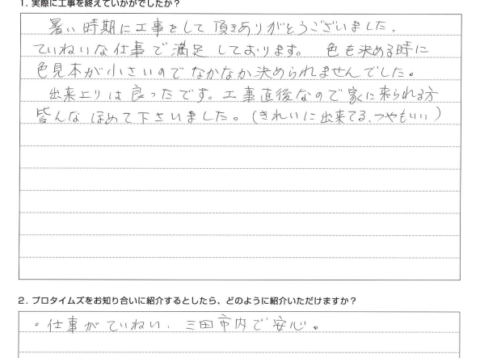 1. 実際に工事を終えていかがでしたか？
暑い時期に工事をして頂きありがとうございました。
ていねいな仕事で満足しております。 色も決める時に
色見本が小さいのでなかなか決められませんでした。
出来上りは良ったです。工事直後なので家に来られる方
皆んなほめて下さいました。(きれいに出来てる、つやもいい)
2. プロタイムズをお知り合いに紹介するとしたら、どのように紹介いただけますか？
・仕事がていねい、三田市内で安心。